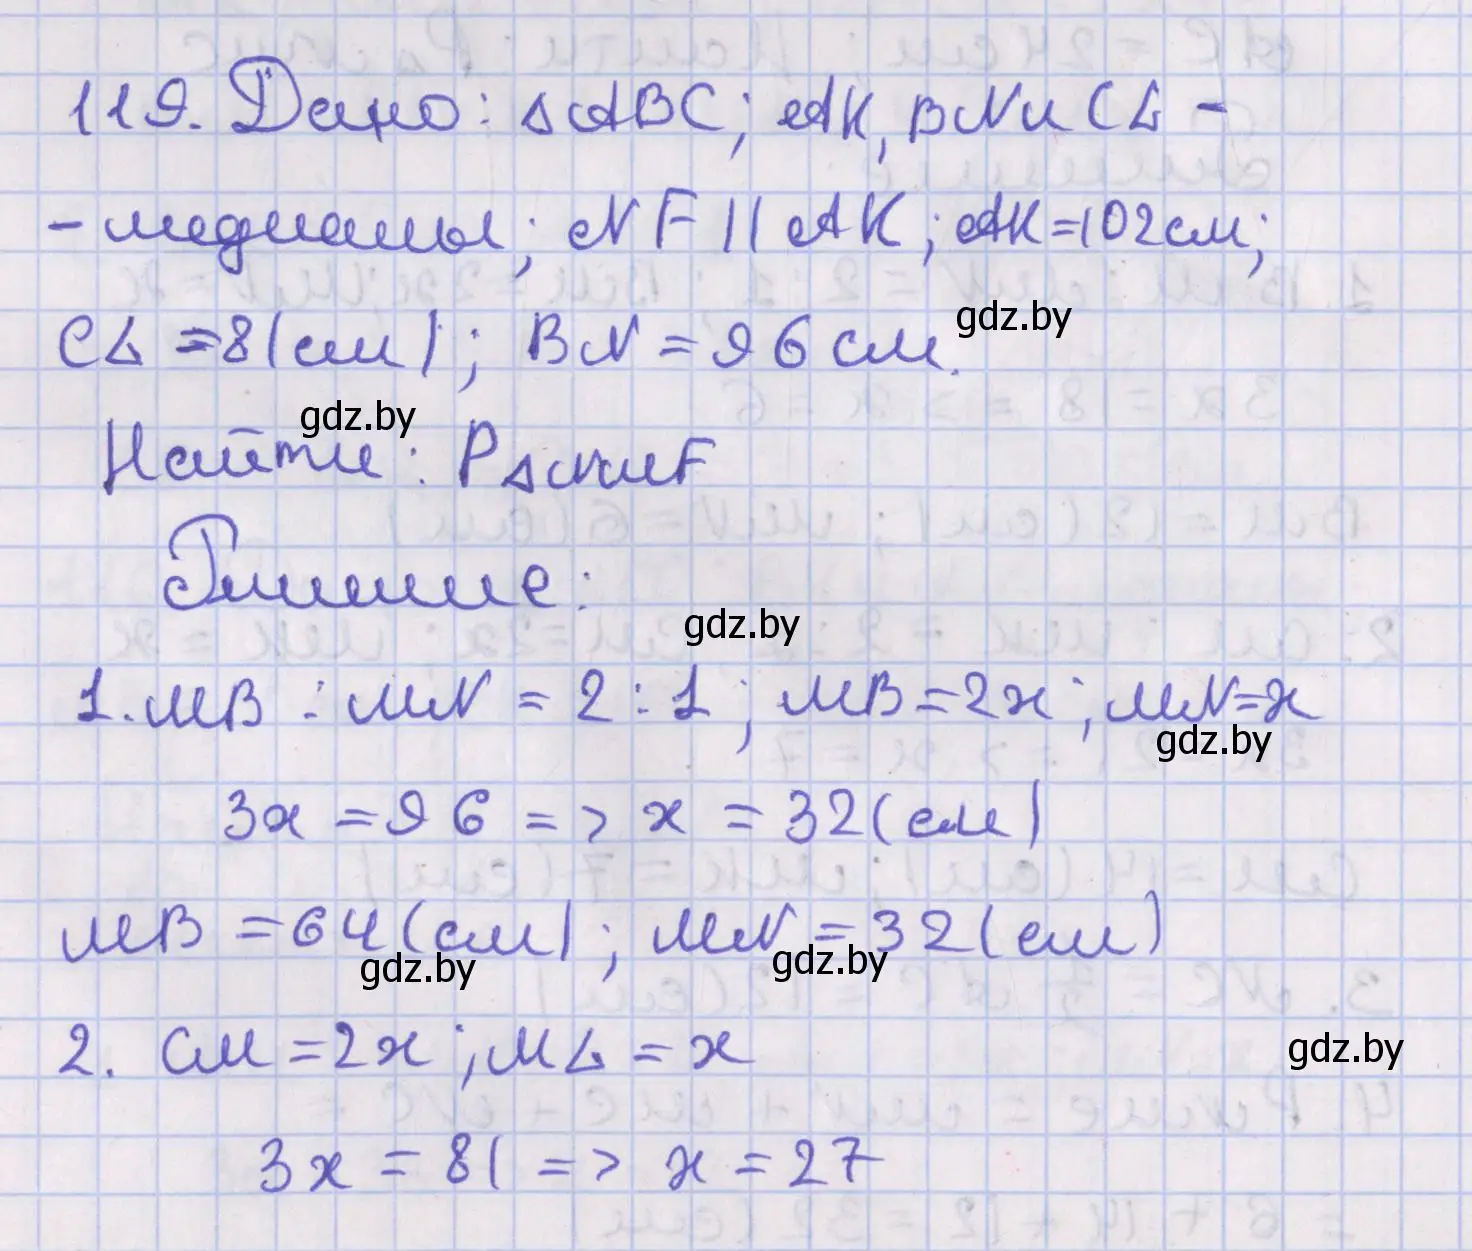 119. Дано: △ABC; AK, BN и CL -
- медианы; NF || AK; AK=102см;
CL = 81(см); BN = 96 см.
gdz.by
Найти: P△NMF
gdz.by
Решение:
gdz.by
1. MB : MN = 2 : 1; MB = 2x; MN=x
gdz.by
3x = 96 => x = 32(см)
MB = 64(см); MN = 32(см)
gdz.by gdz.by
2. CM = 2x; ML = x
gdz.by
3x = 81 => x = 27